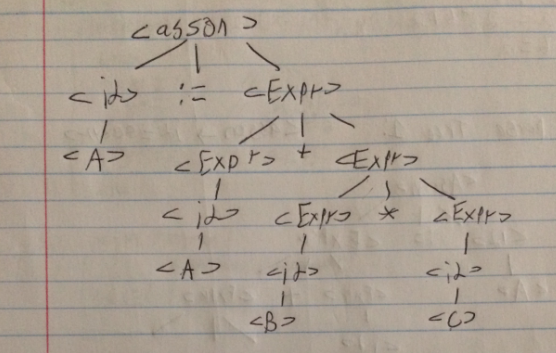 <assgn>
<id> := <Expr>
<A> <Expr> + <Expr>
<id> <Expr> * <Expr>
<A> <id> <id>
<B> <C>